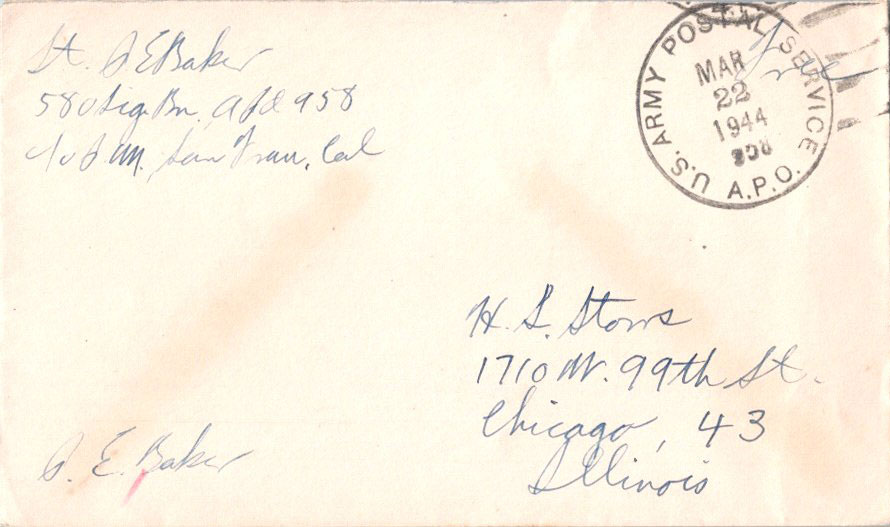 Lt. S E Baker
580 Sig. Bn. APO 958
c/o P.M. San Fran, Cal
U.S. ARMY POSTAL SERVICE
MAR
22
1944
958
A.P.O.
Free
H. S. Storrs
1710 W. 99th St.
Chicago, 43
Illinois
S. E. Baker